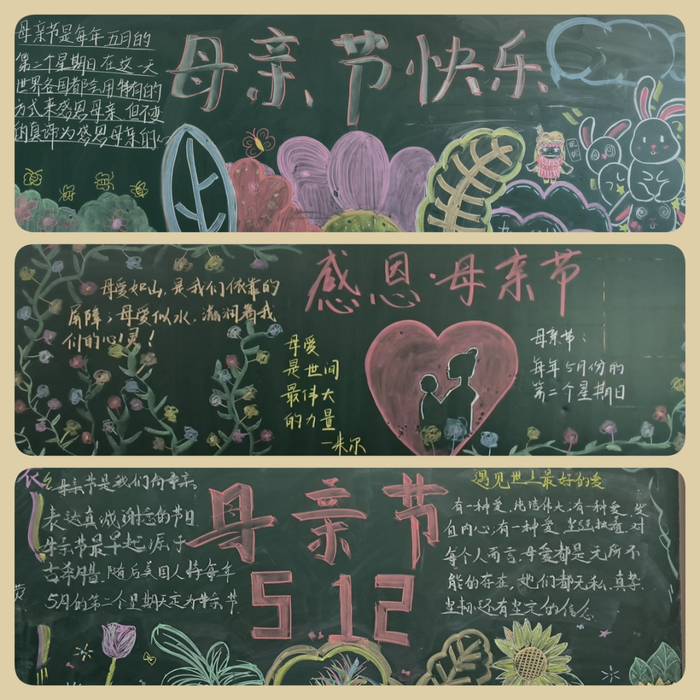 母亲节是每年五月的
第二个星期日在这一天
世界各国都会用特有的
方式来感恩母亲,但不变
的真谛为感恩母亲的心
母亲节快乐
感恩·母亲节
母爱如山,是我们依靠的
屏障;母爱似水,滋润着我
们的心灵!
母爱
是世间
最伟大
的力量
—米尔
母亲节:
每年5月份的
第二个星期日
母亲节是我们向母亲
表达真诚谢意的节日
母亲节最早起源于
古希腊.随后美国人将每年
5月的第二个星期天定为母亲节
母亲节
5 12
遇见世上最好的爱
有一种爱,纯洁伟大;有一种爱,发
自内心;有一种爱,坚强执着.对
每个人而言,母爱都是无所不
能的存在,她们都无私、真挚
坚韧,还有坚定的信念